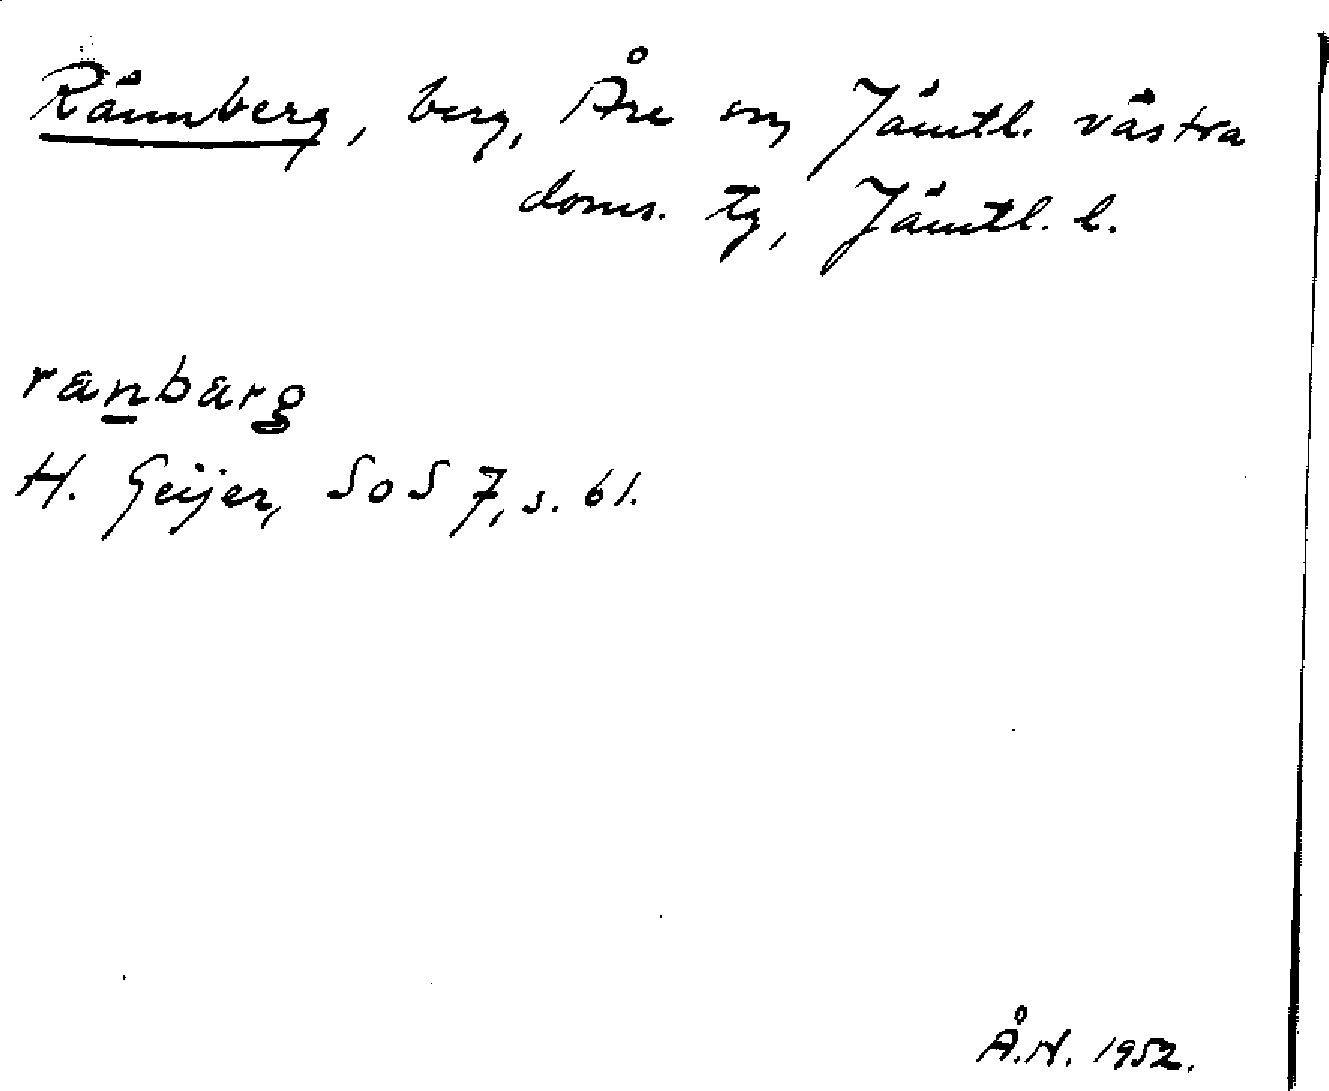 Rännberg, berg, Åre sn, Jämtl. västra
doms. tg, Jämtl. l.
ranbarg
H. Geijer, SoS 7, s. 61.
Å.N. 1952.